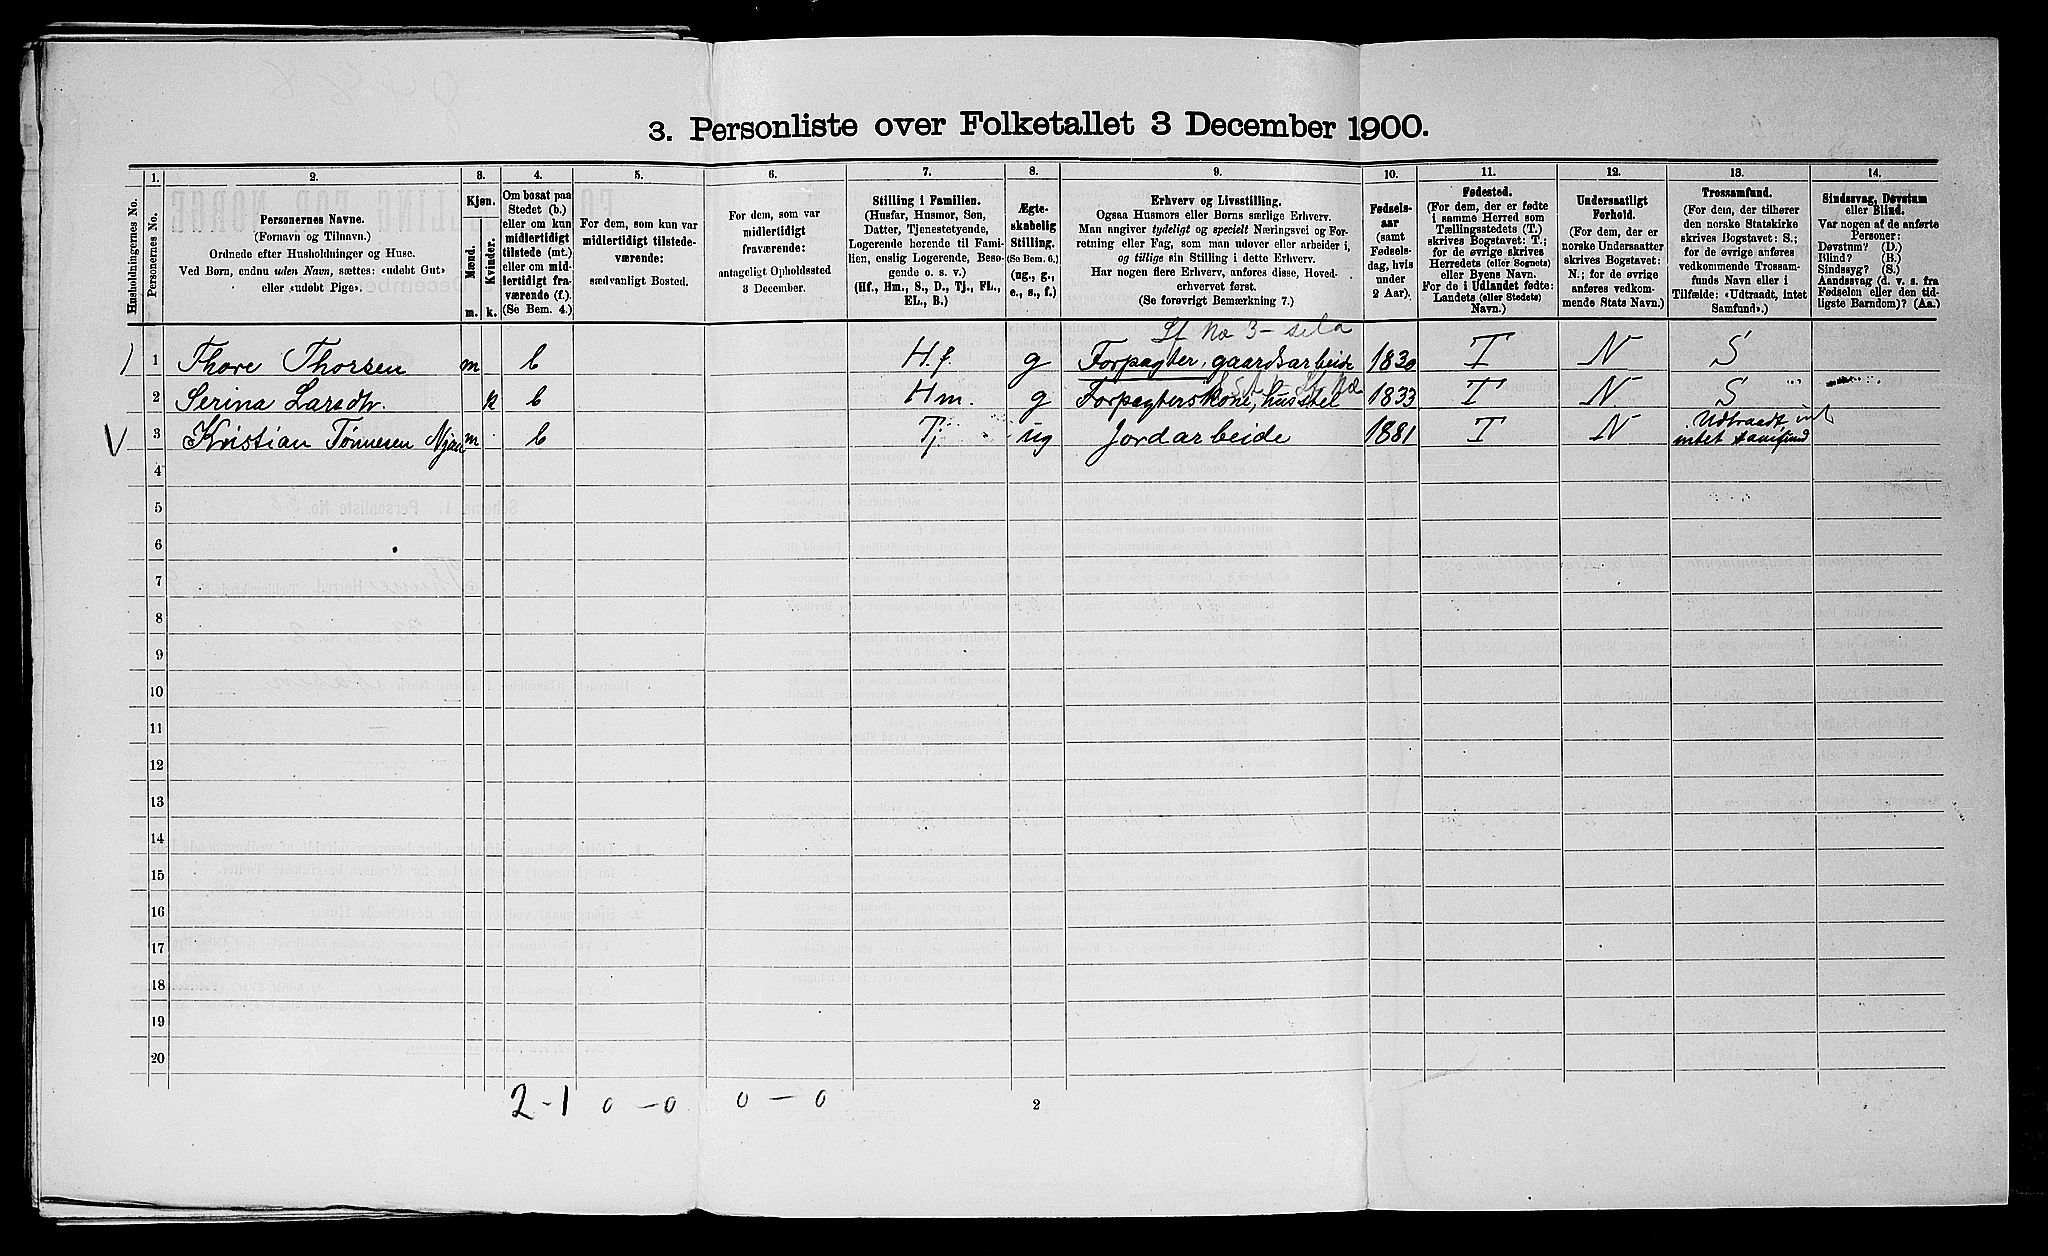 3. Personliste over Folketallet 3 December 1900.
Husholdningernes No.
1.
Personernes No.
2.
Personernes Navne.
(Fornavn og Tilnavn.)
Ordnede efter Husholdninger og Huse.
Ved Børn, endnu uden Navn, sættes: «udøbt Gut»
eller «udøbt Pige».
3.
Kjøn.
Mænd.
Kvinder.
m. k.
4.
Om bosat paa
Stedet (b.)
eller om kun
midlertidigt
tilstede (mt.)
eller om mid-
lertidigt fra-
værende (f.).
(Se Bem. 4.)
5.
For dem, som kun var
midlertidigt tilstede-
værende:
sædvanligt Bosted.
6.
For dem, som var
midlertidigt
fraværende:
antageligt Opholdssted
3 December.
7.
Stilling i Familien.
(Husfar, Husmor, Søn,
Datter, Tjenestetyende,
Logerende hørende til Fami-
lien, enslig Logerende, Besø-
gende o. s. v.)
(Hf., Hm., S., D., Tj., FL.,
EL., B.)
8.
Ægte-
skabelig
Stilling.
(Se Bem. 6.)
(ug., g.,
e., s., f.)
9.
Erhverv og Livsstilling.
Ogsaa Husmors eller Børns særlige Erhverv.
Man angiver tydeligt og specielt Næringsvei og For-
retning eller Fag, som man udover eller arbeider i,
og tillige sin Stilling i dette Erhverv.
Har nogen flere Erhverv, anføres disse, Hoved-
erhvervet først.
(Se forøvrigt Bemærkning 7.)
10.
Fødsels-
aar
(samt
Fødsels-
dag, hvis
under
2 Aar).
11.
Fødested.
(For dem, der er fødte
i samme Herred som
Tællingsstedets (T.)
skrives Bogstavet: T.;
for de øvrige skrives
Herredets (eller Sognets)
eller Byens Navn.
For de i Udlandet fødte:
Landets (eller Stedets)
Navn.)
12.
Undersaatligt
Forhold.
(For dem, der er
norske Undersaatter
skrives Bogstavet:
N.; for de øvrige
anføres vedkom-
mende Stats Navn.)
13.
Trossamfund.
(For dem, der tilhører
den norske Statskirke
skrives Bogstavet: S.;
for de øvrige anføres
vedkommende Trossam-
funds Navn eller i
Tilfælde: «Udtraadt, intet
Samfund».)
14.
Sindssvag, Døvstum
eller Blind.
Var nogen af de anførte
Personer:
Døvstum? (D.)
Blind? (B.)
Sindssyg? (S.)
Aandssvag (d. v. s. fra
Fødselen eller den tid-
ligste Barndom)? (Aa.)
1 1 Thore Thorsen m b Hf. g Forpagter, gaardsarbeide 1830 T N S
2 Serina Larsdtr. k b Hm. g Forpagterskone, husstel 1833 T N S
V 3 Kristian Tønnesen m b Tj ug Jordarbeide 1881 T N Udtraadt,
intet samfund
4
5
6
7
8
9
10
11
12
13
14
15
16
17
18
19
20
2-1 0-0 0-0
2